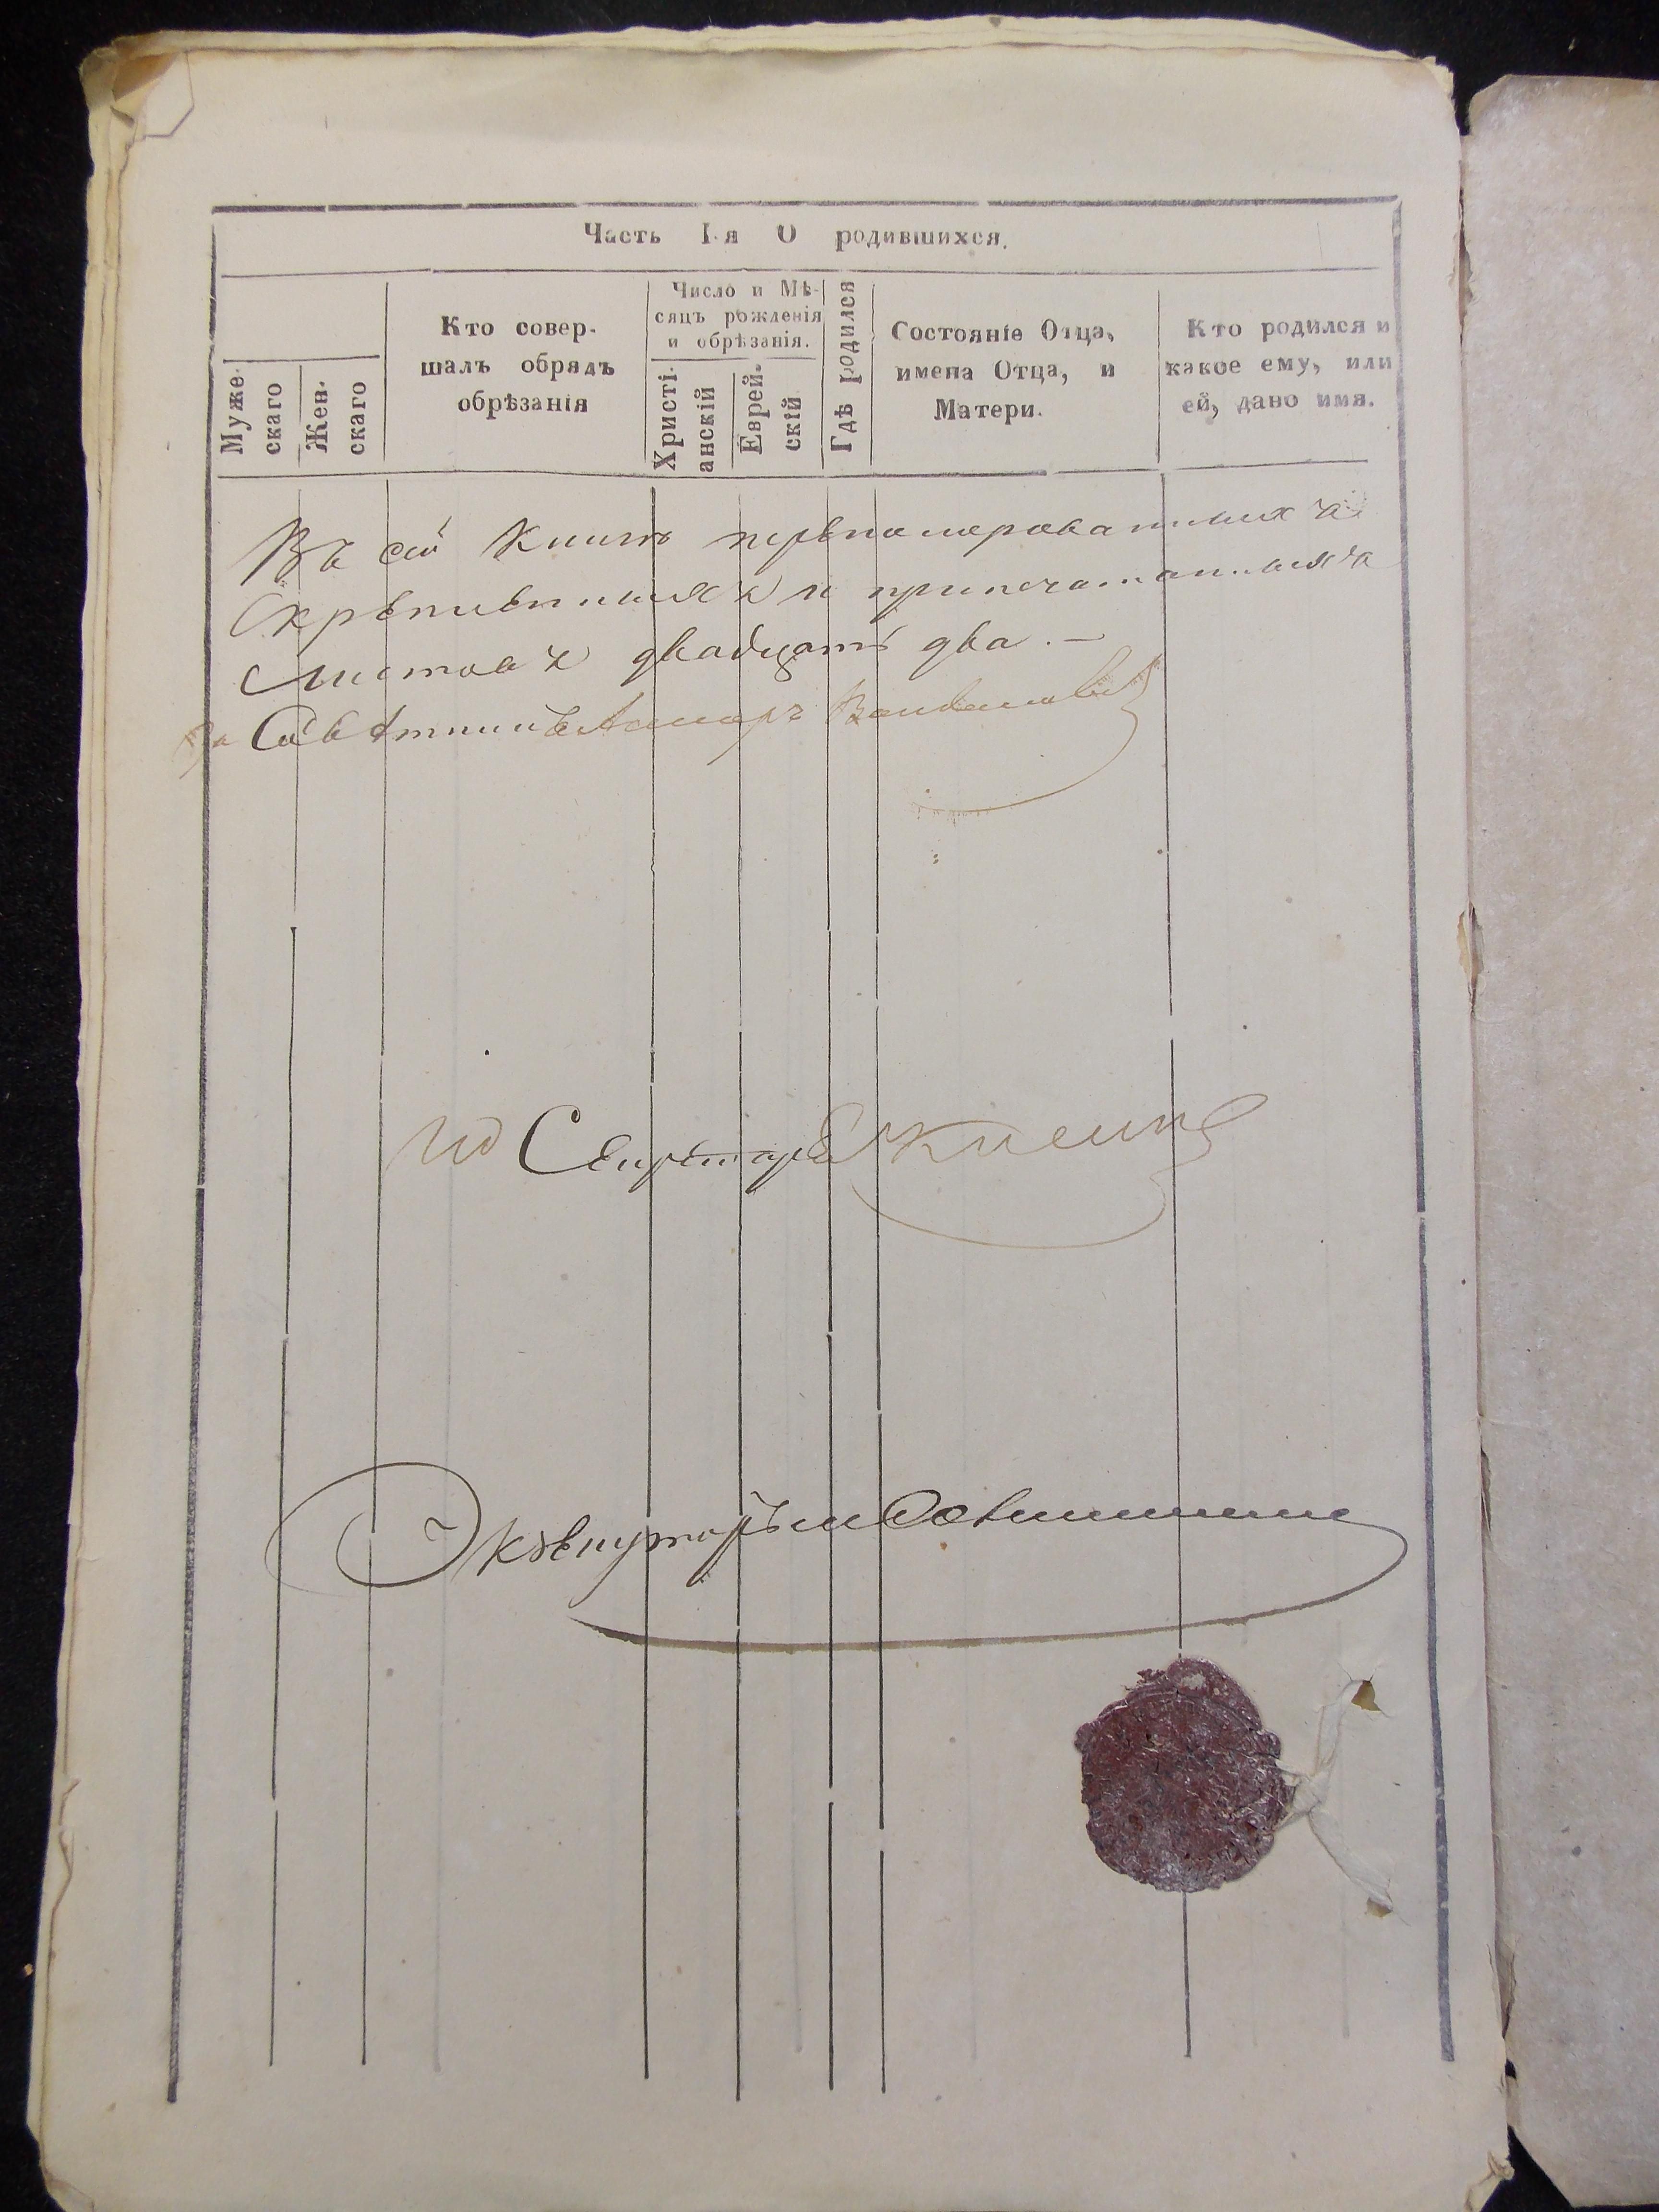 Часть I-я О родившихся.
Муже-
скаго
Жен-
скаго
Кто совер-
шалъ обрядъ
обрѣзанія
Число и Мѣ-
сяцъ рожденія
и обрѣзанія.
Христі-
анскій
Еврей-
скій
Гдѣ родился
Состояніе Отца,
имена Отца, и
Матери.
Кто родился и
какое ему, или
ей, дано имя.
Въ сей Книгѣ
Скрѣпленныхъ и припечатанныхъ
Листовъ двадцать два. —
За Совѣтника Ассесоръ
ИД Секретаря
Экзекуторъ